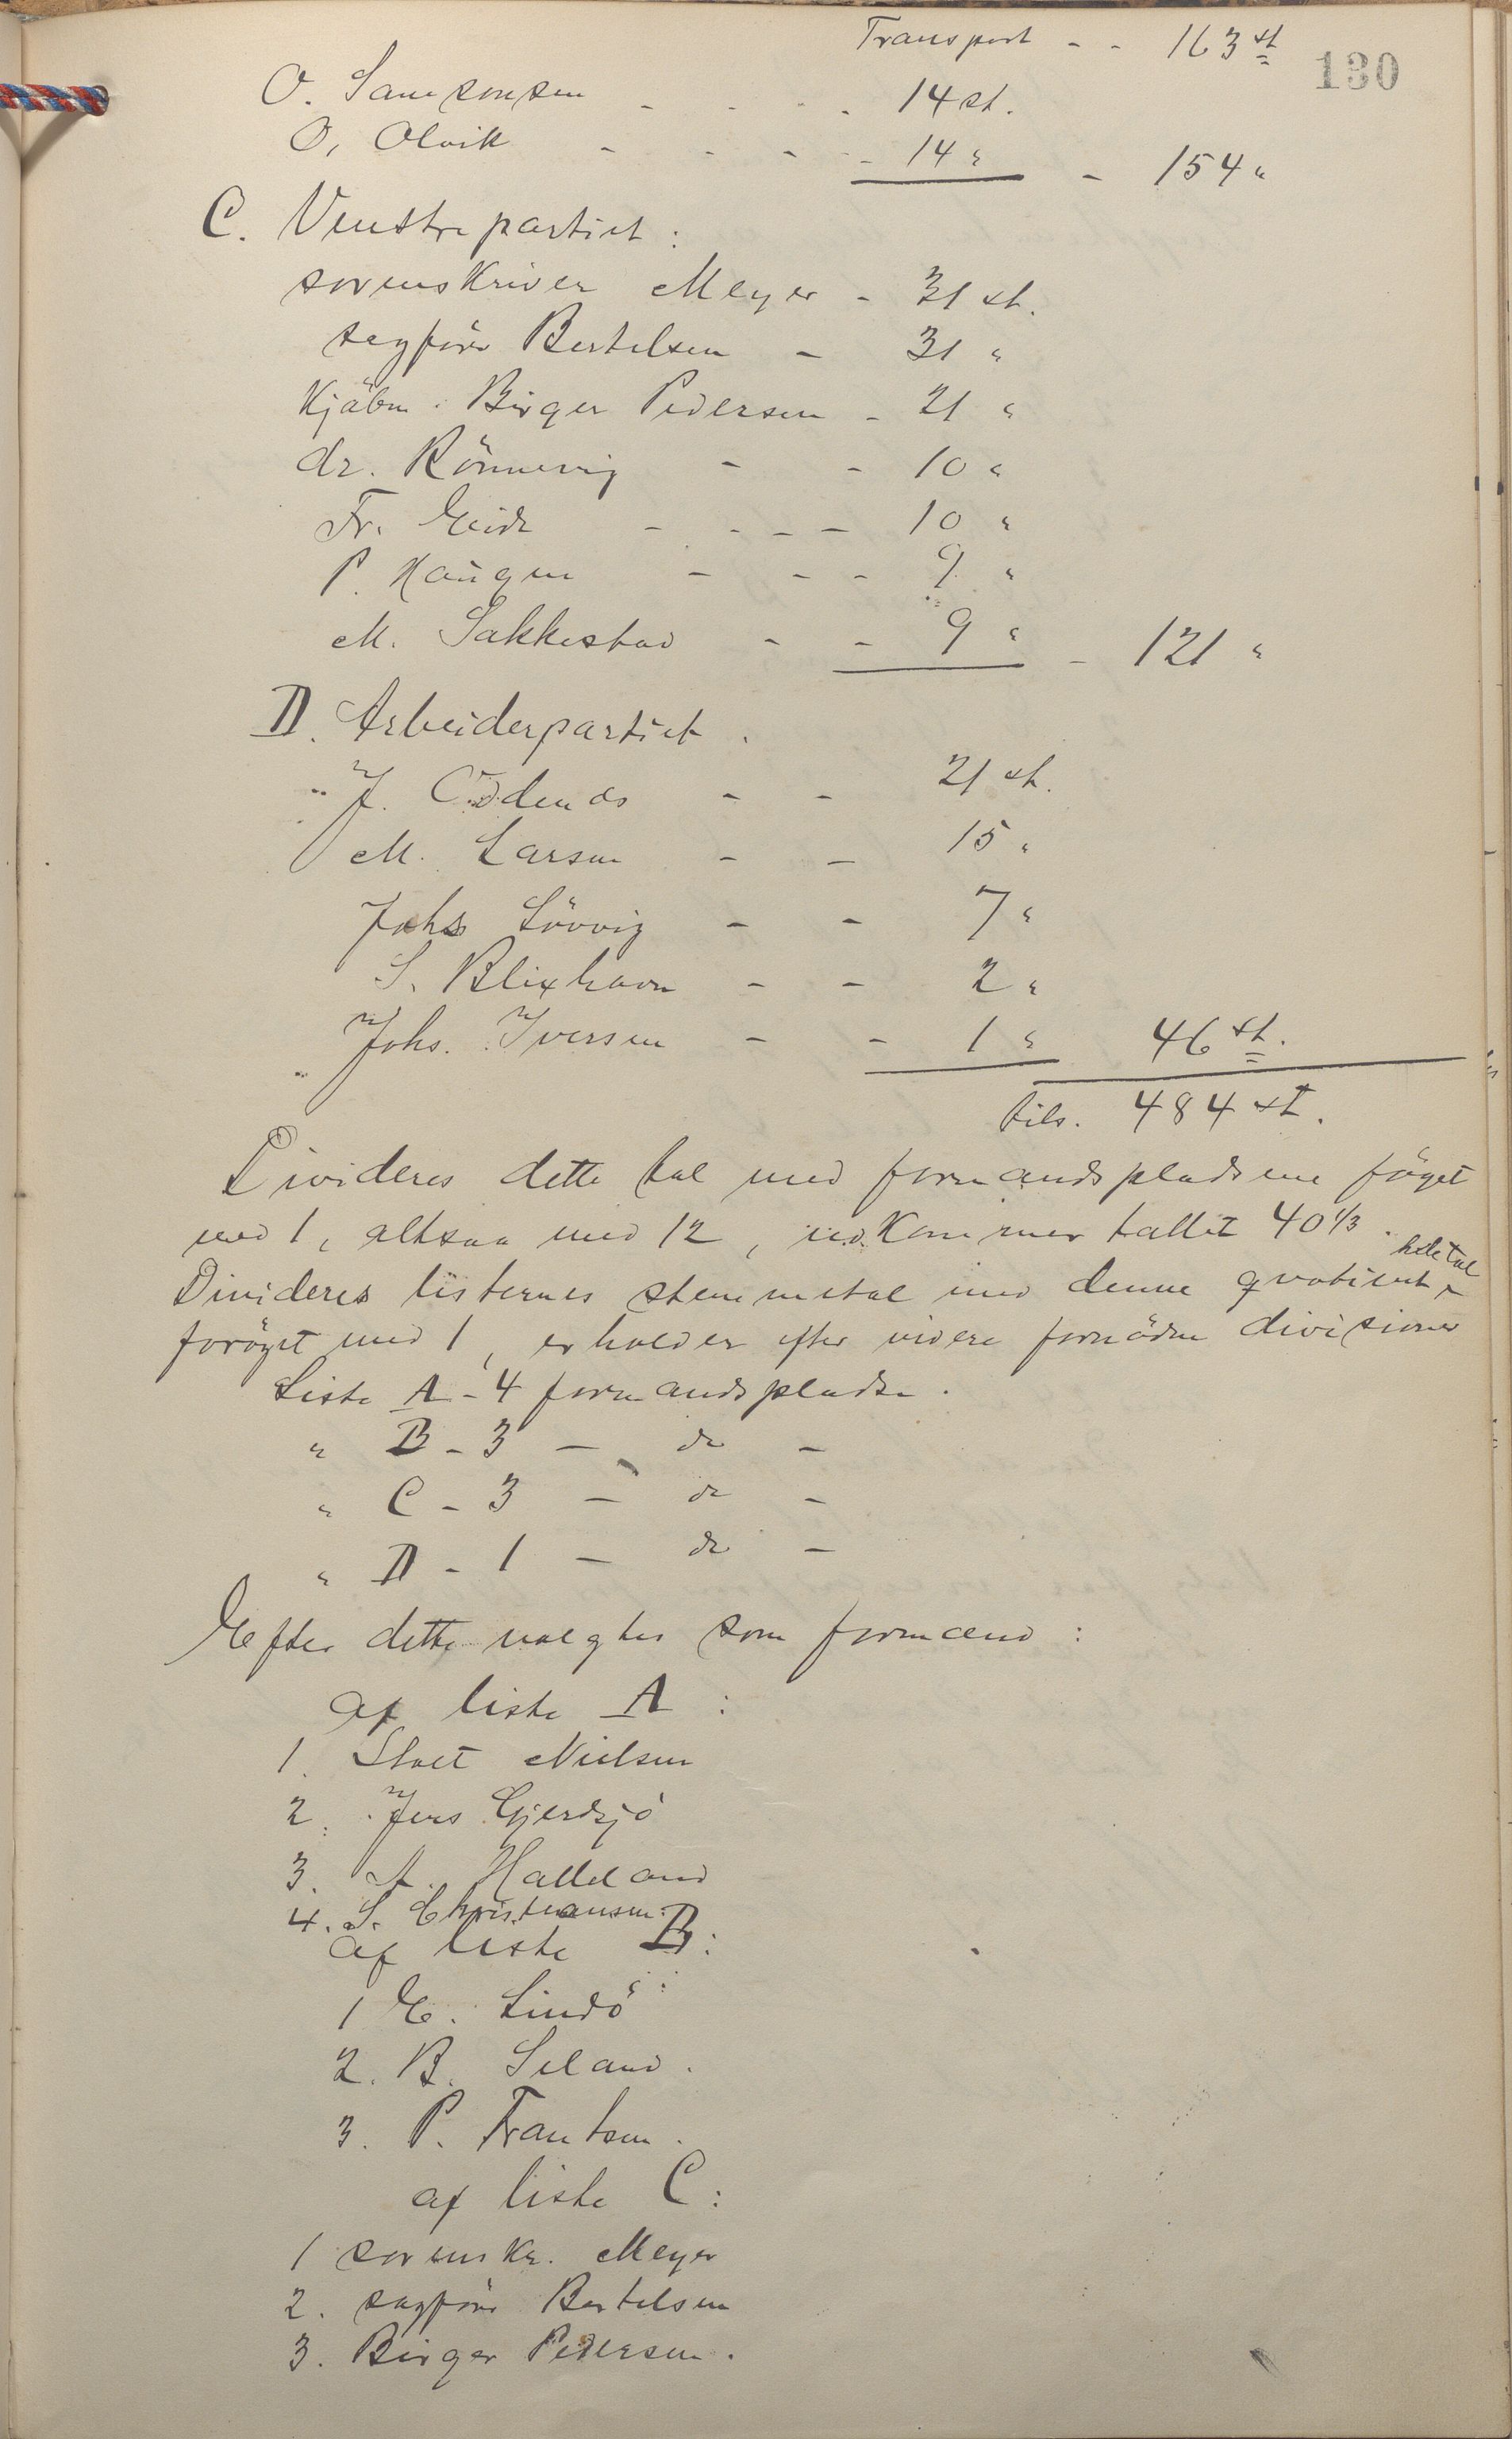 Transport - - 163 st
130
O. Samsonsen - - - 14 st.
O. Olvik - - - - 14 " - 154 "
C. Venstrepartiet :
sorenskriver Meyer - 31 st.
sagförer Bertelsen - 31 "
Kjöbm. Birger Pedersen - 21 "
dr. Rönnevig - - 10 "
Fr. Eide - - - - 10 "
P. Haugen - - - 9 "
M. Sakkestad - - 9 " - 121 "
D. Arbeiderpartiet.
J. Ödenæs - - 21 st.
M. Larsen - - 15 "
Johs Lövvig - - 7 "
S. Blixhavn - - 2 "
Johs. Iversen - - 1 " 46 st.
tils. 484 st.
Divideres dette tal med formandspladsene föget
med 1, altsaa med 12, udkommer tallet 40 1/3.
Divideres listernes stemmetal med denne qvotient hele tal
foröget med 1, erholder efter videre fornödne divisioner
Liste A - 4 formandspladse.
" B - 3 - do -
" C - 3 - do -
" D - 1 - do -
Efter dette valgtes som formænd :
af liste A :
1. Stolt Nielsen
2. Jens Gjerdsjö
3. A. Halleland
4. S. Christiansen.
af liste B :
1 E. Lindö
2. B. Seland.
3. P. Frantsen.
af liste C :
1 sorenskr. Meyer
2. sagförer Bertelsen
3. Birger Pedersen.